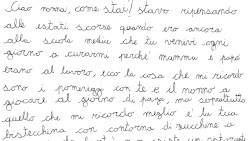 Ciao nonna, come stai? stavo ripensando
alle estati scorse quando ero ancora
alla scuola media che tu venivi ogni
giorno a curarmi perché mamma e papà
erano al lavoro, ecco la cosa che mi ricordo
sono i pomeriggi con te e il nonno a
giocare al giorno di paga, ma soprattutto
quello che mi ricordo meglio è la tua
bistecchina con contorno di zucchine a